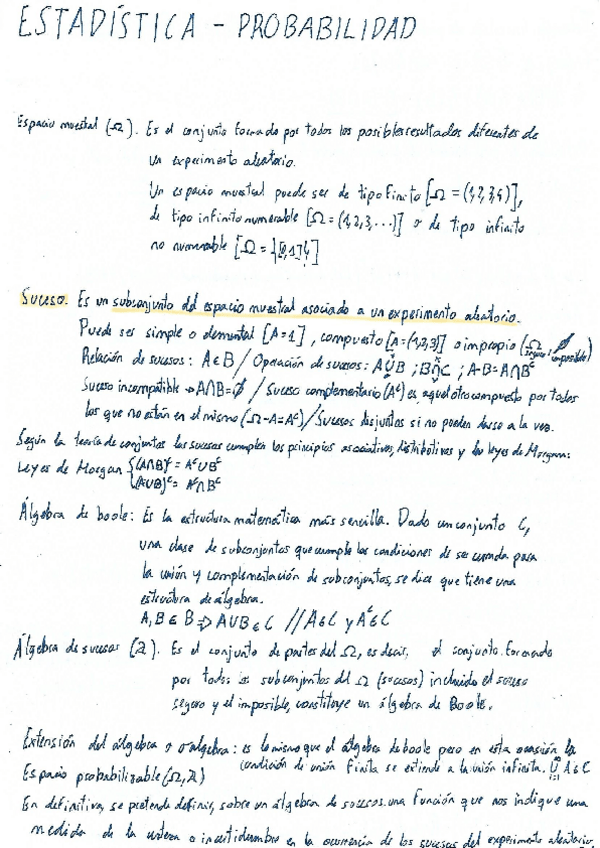 ESTADÍSTICA - PROBABILIDAD
Espacio muestral (Ω). Es el conjunto formado por todos los posibles resultados diferentes de
un experimento aleatorio.
Un espacio muestral puede ser de tipo finito [Ω = (1,2,3,4)],
de tipo infinito numerable [Ω = (1,2,3,...)] o de tipo infinito
no numerable [Ω = {[0,1]}]
Suceso. Es un subconjunto del espacio muestral asociado a un experimento aleatorio.
Puede ser simple o elemental [A=1], compuesto [A=(1,2,3)] o impropio (Ω seguro; ∅ imposible)
Relación de sucesos: A∈B / Operación de sucesos: A∪B ; B∩C ; A-B=A∩Bᶜ
Suceso incompatible → A∩B=∅ / Suceso complementario (Aᶜ) es aquel otro compuesto por todos
los que no están en el mismo (Ω-A=Aᶜ) / Sucesos disjuntos si no pueden darse a la vez.
Según la teoría de conjuntos los sucesos cumplen los principios asociativos, distributivos y las leyes de Morgan:
Leyes de Morgan {(A∩B)ᶜ = Aᶜ∪Bᶜ
(A∪B)ᶜ = Aᶜ∩Bᶜ
Álgebra de boole: Es la estructura matemática más sencilla. Dado un conjunto C,
una clase de subconjuntos que cumple las condiciones de ser cerrada para
la unión y complementación de subconjuntos, se dice que tiene una
estructura de álgebra.
A, B ∈ B => A∪B ∈ C // A∈C y Aᶜ∈C
Álgebra de sucesos (). Es el conjunto de partes del Ω, es decir, el conjunto formado
por todos los subconjuntos del Ω (sucesos) incluido el suceso
seguro y el imposible, constituye un álgebra de Boole.
Extensión del álgebra o σ álgebra: es lo mismo que el álgebra de boole pero en esta ocasión la
condición de unión finita se extiende a la unión infinita. ∪ A∈C
Espacio probabilizable (Ω,)
En definitiva, se pretende definir, sobre un álgebra de sucesos una función que nos indique una
medida de la certeza o incertidumbre en la ocurrencia de los sucesos del experimento aleatorio.